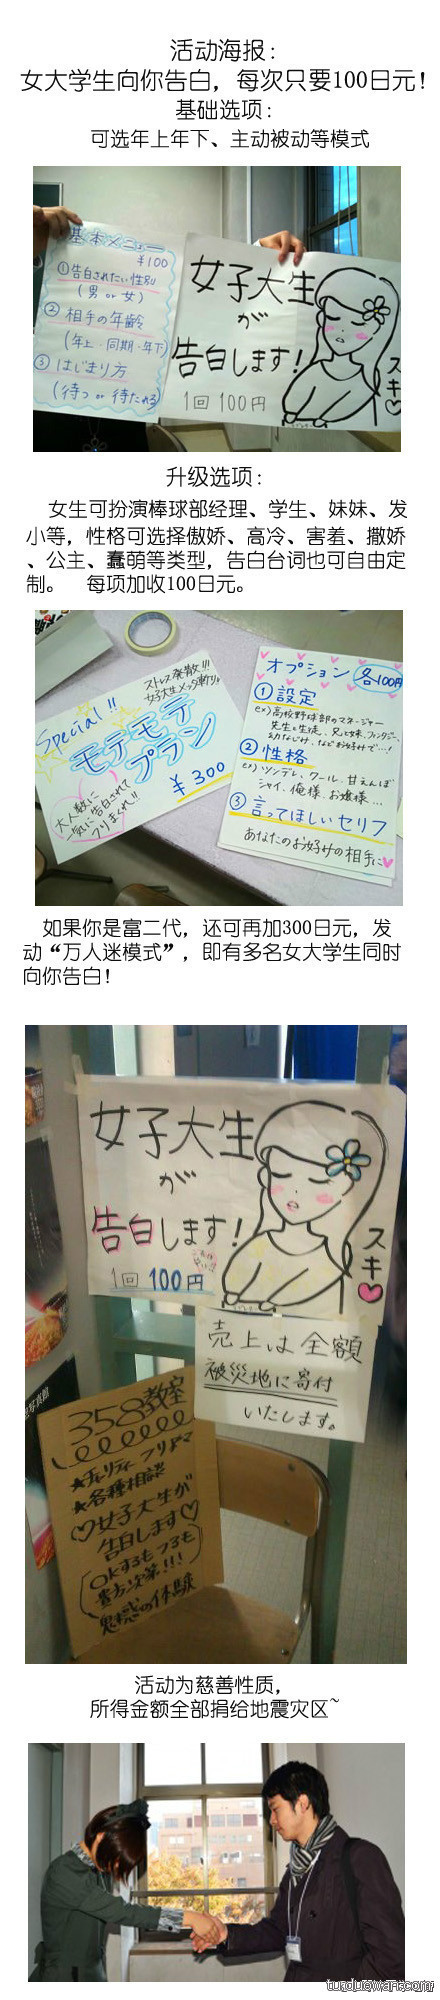 活动海报：
女大学生向你告白，每次只要100日元！
基础选项：
可选年上年下、主动被动等模式
基本メニュー
¥100
①告白されたい性別
(男 or 女)
②相手の年齢
(年上・同期・年下)
③はじまり方
(待つ or 待たれる)
女子大生
が
告白します！
1回 100円
スキ
升级选项：
女生可扮演棒球部经理、学生、妹妹、发
小等，性格可选择傲娇、高冷、害羞、撒娇
、公主、蠢萌等类型，告白台词也可自由定
制。 每项加收100日元。
Special!!
ストレス発散!!!
女子大生メッタ斬り。
モテモテ
プラン
¥300
大人数に
一気に告白されて
フリまくれ!!
オプション 各100円
①設定
ex)高校野球部のマネージャー
先生と生徒、兄と妹、ファンタジー、
幼なじみ、などお好みで…!
②性格
ex)ツンデレ、クール、甘えんぼ
シャイ、俺様、お嬢様…
③言ってほしいセリフ
あなたのお好みの相手に
如果你是富二代，还可再加300日元，发
动“万人迷模式”，即有多名女大学生同时
向你告白！
女子大生
が
告白します！
1回 100円
スキ
売上は全額
被災地に寄付
いたします。
358教室
★チャリティーフリドマ
★各種相談
♡女子大生が
告白します♡
OKするもフるも
貴方次第!!!
魅惑の体験
活动为慈善性质，
所得金额全部捐给地震灾区~